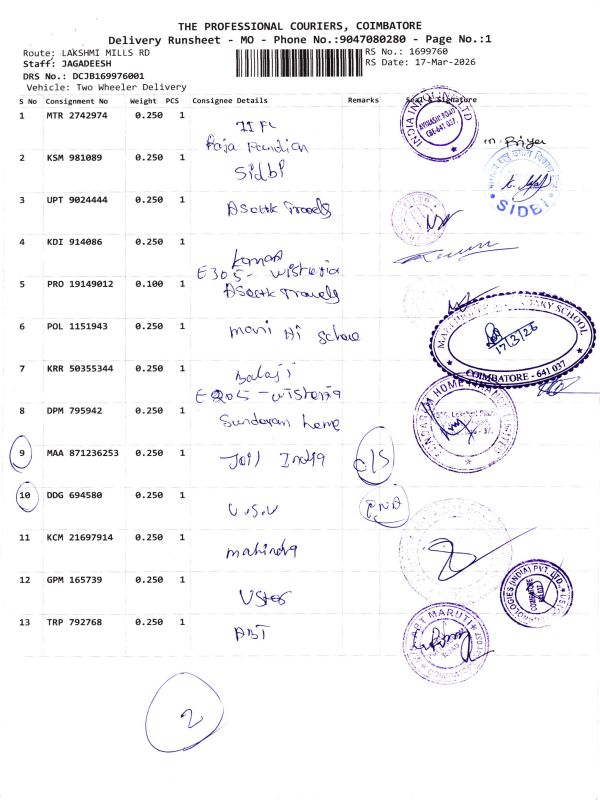 THE PROFESSIONAL COURIERS, COIMBATORE
Delivery Runsheet - MO - Phone No.:9047080280 - Page No.:1
Route: LAKSHMI MILLS RD
RS No.: 1699760
Staff: JAGADEESH
RS Date: 17-Mar-2026
DRS No.: DCJB169976001
Vehicle: Two Wheeler Delivery
S No Consignment No Weight PCS Consignee Details Remarks Seal & Signature
1 MTR 2742974 0.250 1
Raja Pandian
INDIA INFOLINE LTD
AVINASHI ROAD
CBE-641 037.
m. Priya
2 KSM 981089 0.250 1 Sidbi
SIDBI
3 UPT 9024444 0.250 1 Travels
4 KDI 914086 0.250 1
E305 - wisteria
5 PRO 19149012 0.100 1 Travels
6 POL 1151943 0.250 1 mani Hi School
17/3/26
COIMBATORE - 641 037
7 KRR 50355344 0.250 1 Balaji
E205 - wisteria
8 DPM 795942 0.250 1 Sundaram home
9 MAA 871236253 0.250 1 India O/S
10 DDG 694580 0.250 1 V.S.V
11 KCM 21697914 0.250 1 mahindra
12 GPM 165739 0.250 1
13 TRP 792768 0.250 1 ABT
ABT MARUTI
2